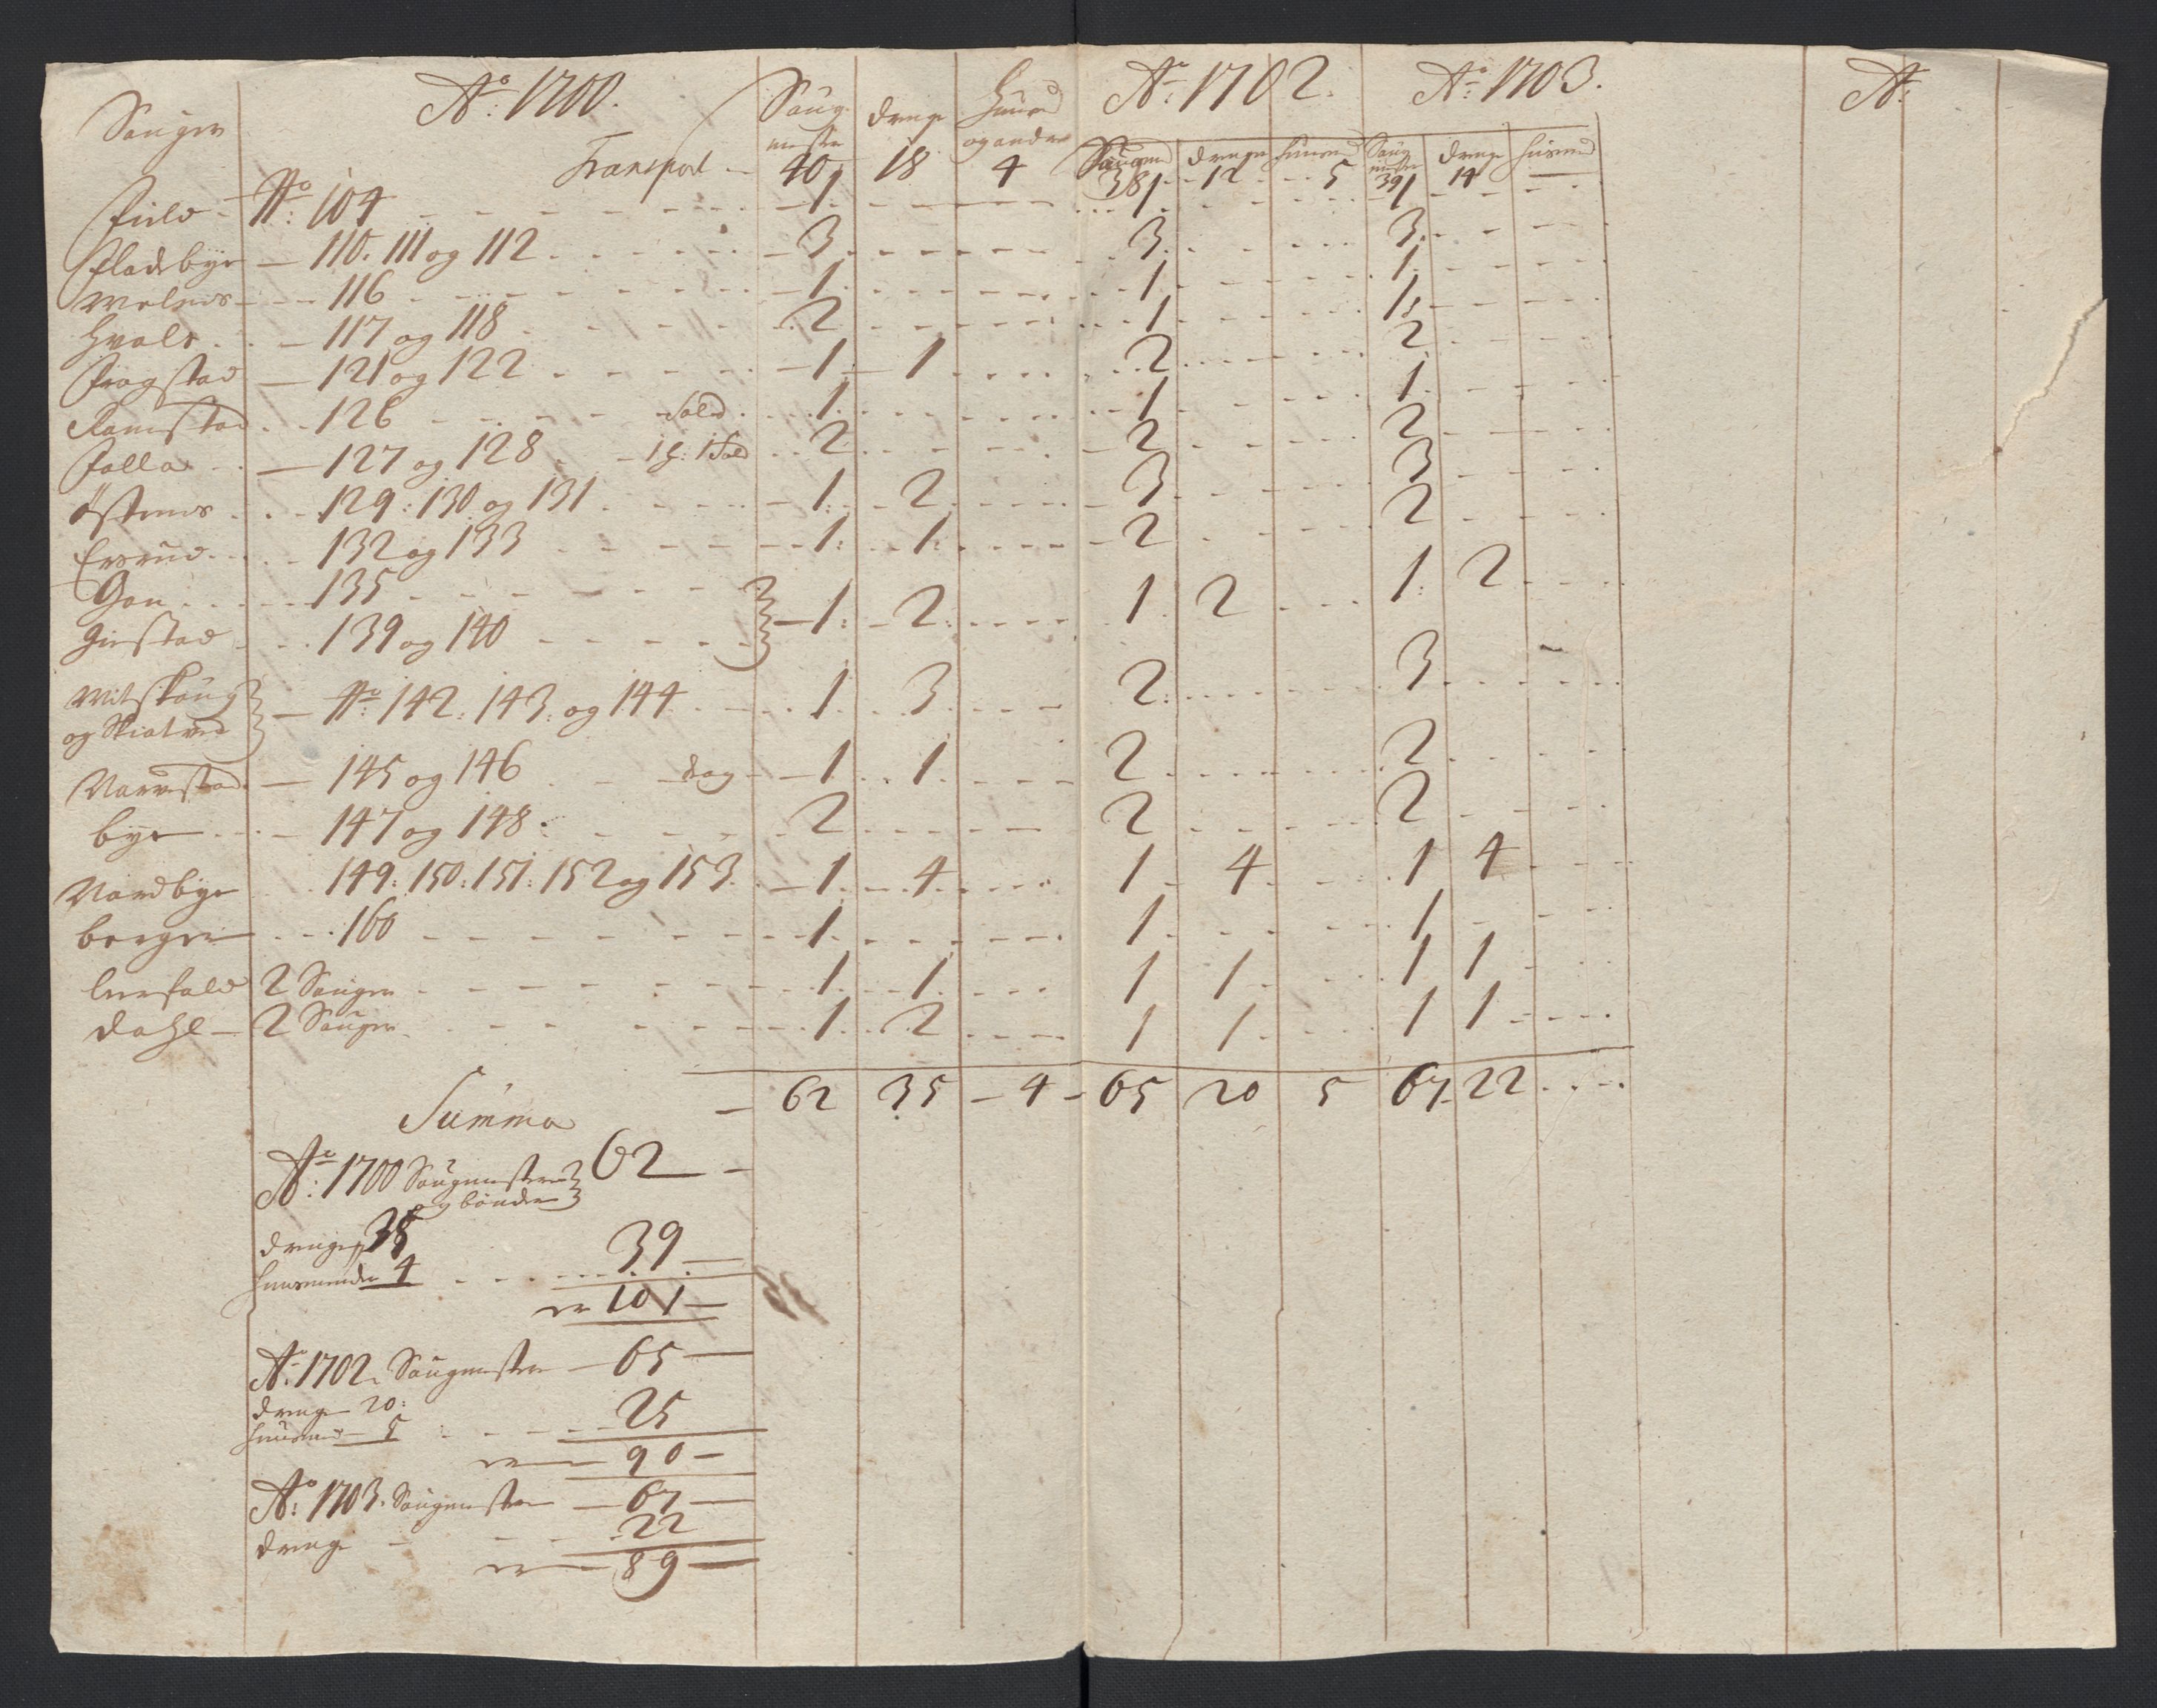 Sauger Ao: 1700. Saug- mestre Drenge Huusmd og andre Ao: 1702. Ao: 1703. Ao:
Saugmd Drenge Huusmd Saug mestre Drenge Husmd
Transport - 40 18 4 38 12 5 39 14
Field - No: 104 1 1 1
Fladebye - 110. 111 og 112 3 3 3
116 1 1 1
Hvals - 117 og 118 2 1 1
Frogstad - 121 og 122 1 1 2 2
Ramstad - 126 Sold. 1 1 1
Falla - 127 og 128 - 1 g: 1 Sold 2 2 2
Østenes - 129: 130 og 131 1 2 3 3
Ersrud - 132 og 133 1: 1: 2 2
Gon - 135
Giestad - 139 og 140 1: 2: 1 2 1: 2
Mitskoug og Skiatvedt - No: 142: 143: og 144 1 3 2: 3
Narrestad - 145 og 146 - dag - 1 1 2 2
bye - 147 og 148 2 2 2
Nordbye 149: 150: 151: 152 og 153. 1 4 1 4 1 4
bergen - 160 1 1 1
Leerfald 2 Sauger 1 1 1 1 1 1
Dahl - 2 Sauger 1 2 1 1 1 1
Summa - 62 35 - 4 - 65 20 5 67 22
Ao: 1700 Saugmestere og bønder 62 -
drenge 35
Huusmende 4 39 -
er 101 -
Ao: 1702 Saugmestere - 65 -
drenge 20:
Huusmd - 5 25
er 90 -
Ao: 1703. Saugmestere - 67 -
drenge - 22
er 89 -